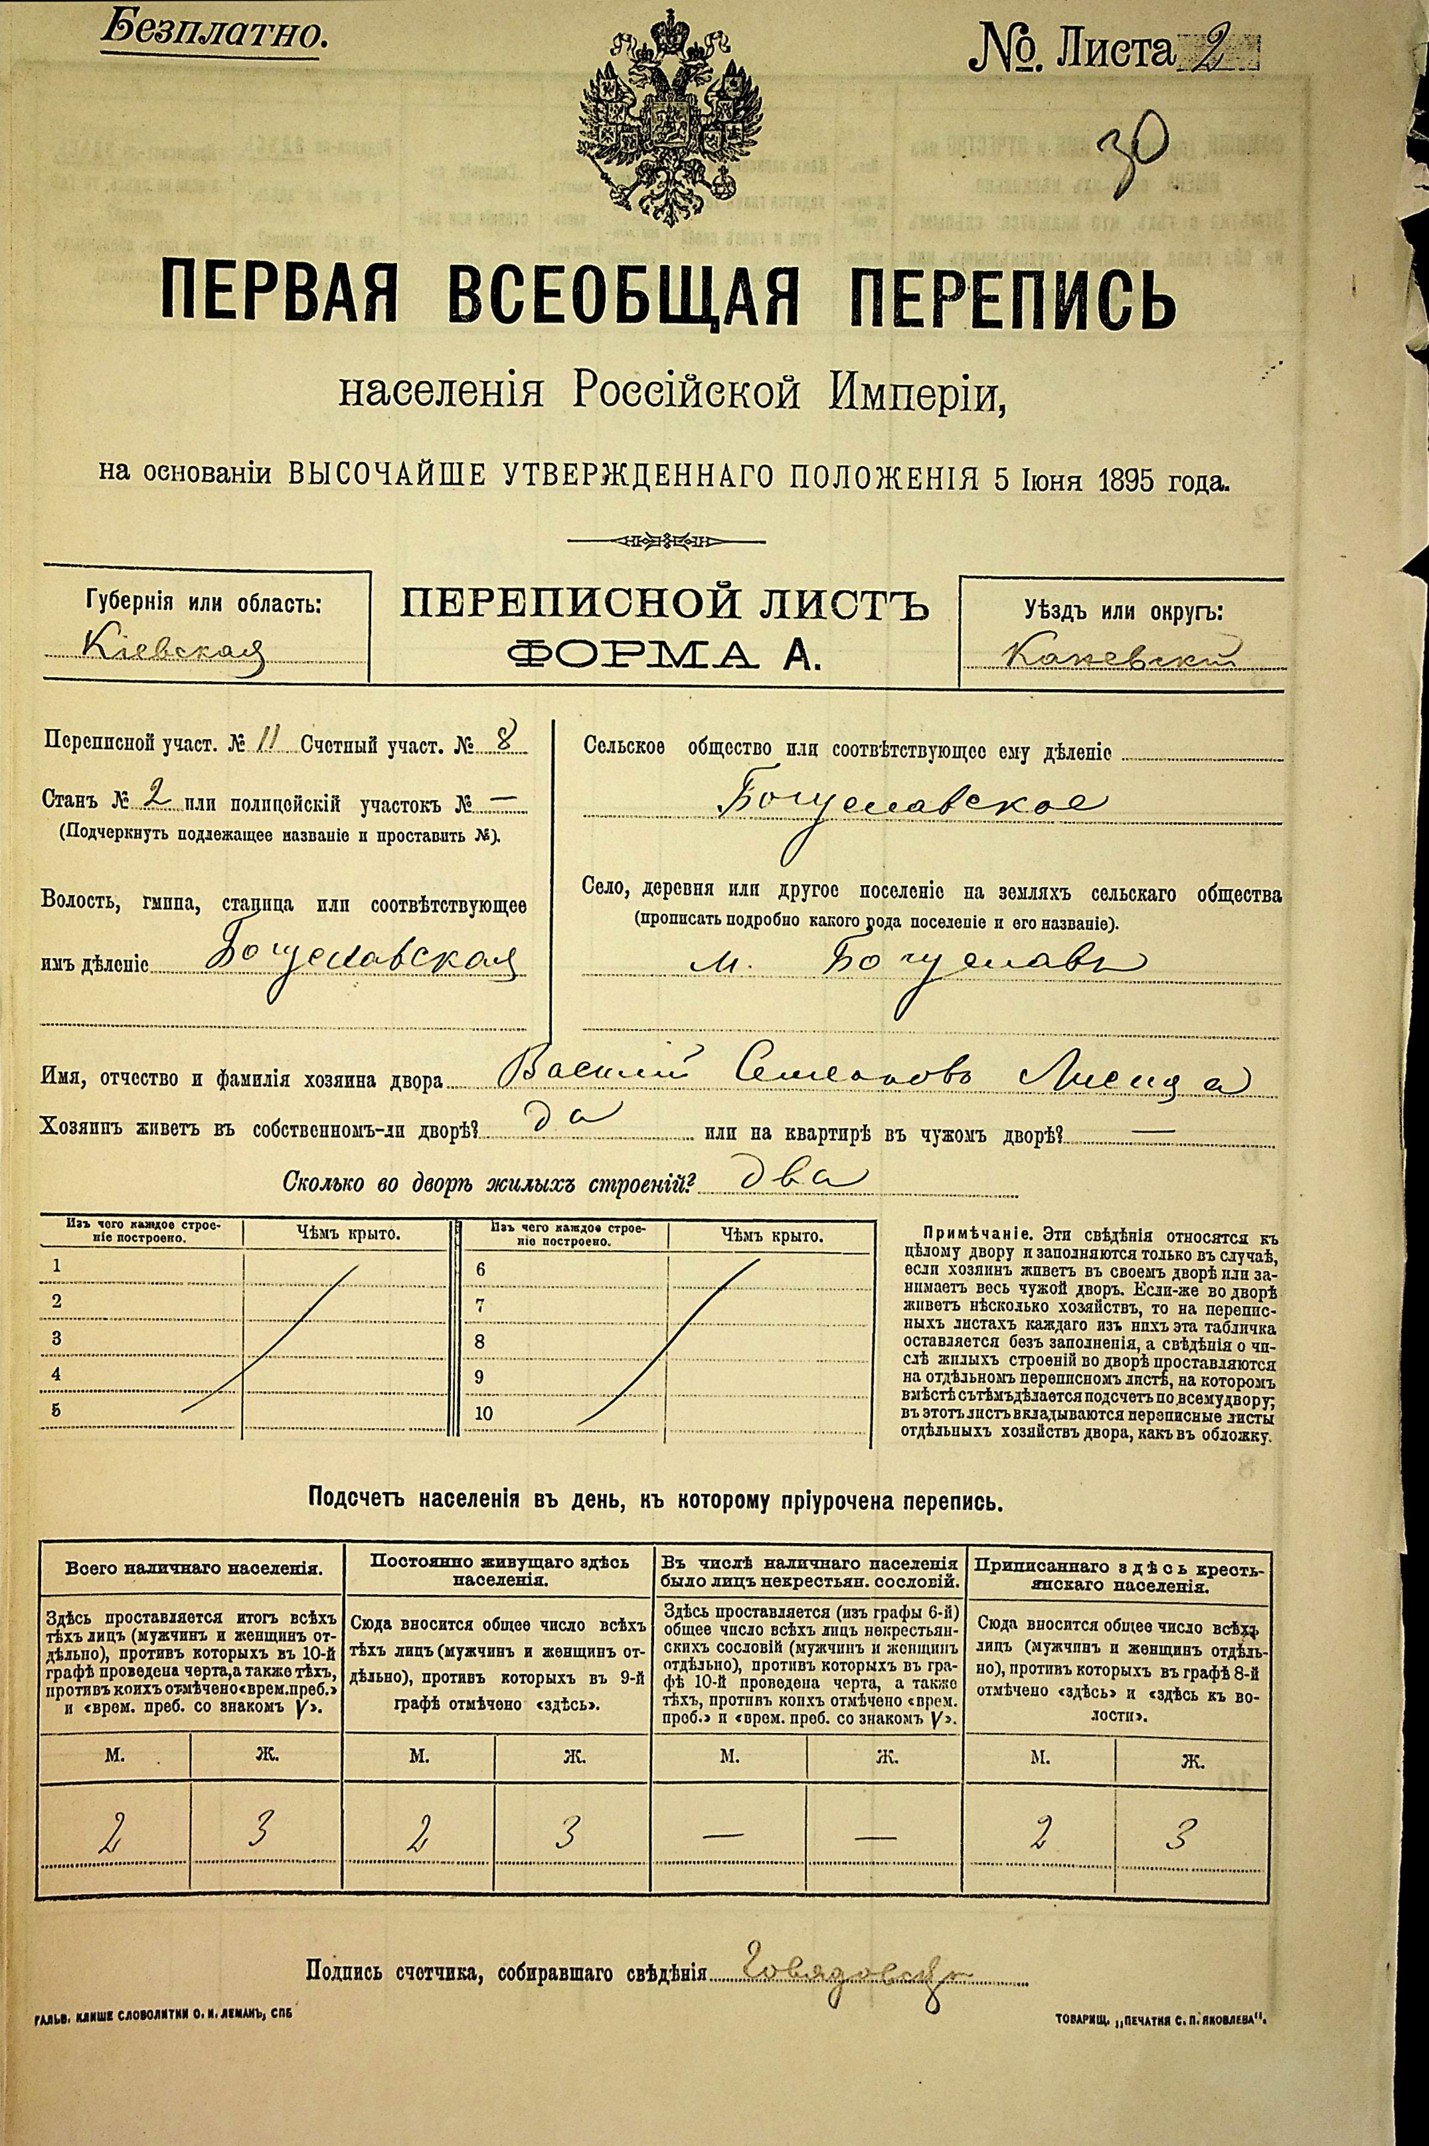 Безплатно.
№. Листа 2
30
ПЕРВАЯ ВСЕОБЩАЯ ПЕРЕПИСЬ
населенія Россійской Имперіи,
на основаніи ВЫСОЧАЙШЕ УТВЕРЖДЕННАГО ПОЛОЖЕНІЯ 5 Іюня 1895 года.
Губернія или область:
Кіевская
ПЕРЕПИСНОЙ ЛИСТЪ
ФОРМА А.
Уѣздъ или округъ:
Каневскій
Переписной участ. № 11 Счетный участ. № 8
Станъ № 2 или полицейскій участокъ № —
(Подчеркнуть подлежащее названіе и проставить №).
Волость, гмина, станица или соотвѣтствующее
имъ дѣленіе Богуславская
Сельское общество или соотвѣтствующее ему дѣленіе
Богуславское
Село, деревня или другое поселеніе на земляхъ сельскаго общества
(прописать подробно какого рода поселеніе и его названіе).
м. Богуславъ
Имя, отчество и фамилія хозяина двора Василій Семеновъ Лисица
Хозяинъ живетъ въ собственномъ-ли дворѣ? да или на квартирѣ въ чужомъ дворѣ? —
Сколько во дворѣ жилыхъ строеній? два
Изъ чего каждое строе-
ніе построено.
Чѣмъ крыто.
1
2
3
4
5
Изъ чего каждое строе-
ніе построено.
Чѣмъ крыто.
6
7
8
9
10
Примѣчаніе. Эти свѣдѣнія относятся къ
цѣлому двору и заполняются только въ случаѣ,
если хозяинъ живетъ въ своемъ дворѣ или за-
нимаетъ весь чужой дворъ. Если-же во дворѣ
живетъ нѣсколько хозяйствъ, то на перепис-
ныхъ листахъ каждаго изъ нихъ эта табличка
оставляется безъ заполненія, а свѣдѣнія о чи-
слѣ жилыхъ строеній во дворѣ проставляются
на отдѣльномъ переписномъ листѣ, на которомъ
вмѣстѣ съ тѣмъ дѣлается подсчетъ по всему двору;
въ этотъ листъ вкладываются переписные листы
отдѣльныхъ хозяйствъ двора, какъ въ обложку.
Подсчетъ населенія въ день, къ которому пріурочена перепись.
Всего наличнаго населенія.
Здѣсь проставляется итогъ всѣхъ
тѣхъ лицъ (мужчинъ и женщинъ от-
дѣльно), противъ которыхъ въ 10-й
графѣ проведена черта, а также тѣхъ,
противъ коихъ отмѣчено «врем. преб.»
и «врем. преб. со знакомъ V».
М. Ж.
2 3
Постоянно живущаго здѣсь
населенія.
Сюда вносится общее число всѣхъ
тѣхъ лицъ (мужчинъ и женщинъ от-
дѣльно), противъ которыхъ въ 9-й
графѣ отмѣчено «здѣсь».
М. Ж.
2 3
Въ числѣ наличнаго населенія
было лицъ некрестьян. сословій.
Здѣсь проставляется (изъ графы 6-й)
общее число всѣхъ лицъ некрестьян-
скихъ сословій (мужчинъ и женщинъ
отдѣльно), противъ которыхъ въ гра-
фѣ 10-й проведена черта, а также
тѣхъ, противъ коихъ отмѣчено «врем.
преб.» и «врем. преб. со знакомъ V».
М. Ж.
— —
Приписаннаго здѣсь кресть-
янскаго населенія.
Сюда вносится общее число всѣхъ
лицъ (мужчинъ и женщинъ отдѣль-
но), противъ которыхъ въ графѣ 8-й
отмѣчено «здѣсь» и «здѣсь къ во-
лости».
М. Ж.
2 3
Подпись счетчика, собиравшаго свѣдѣнія
ГАЛЬВ. КЛИШЕ СЛОВОЛИТНИ О. И. ЛЕМАНЪ, СПБ
ТОВАРИЩ. „ПЕЧАТНЯ С. П. ЯКОВЛЕВА“.